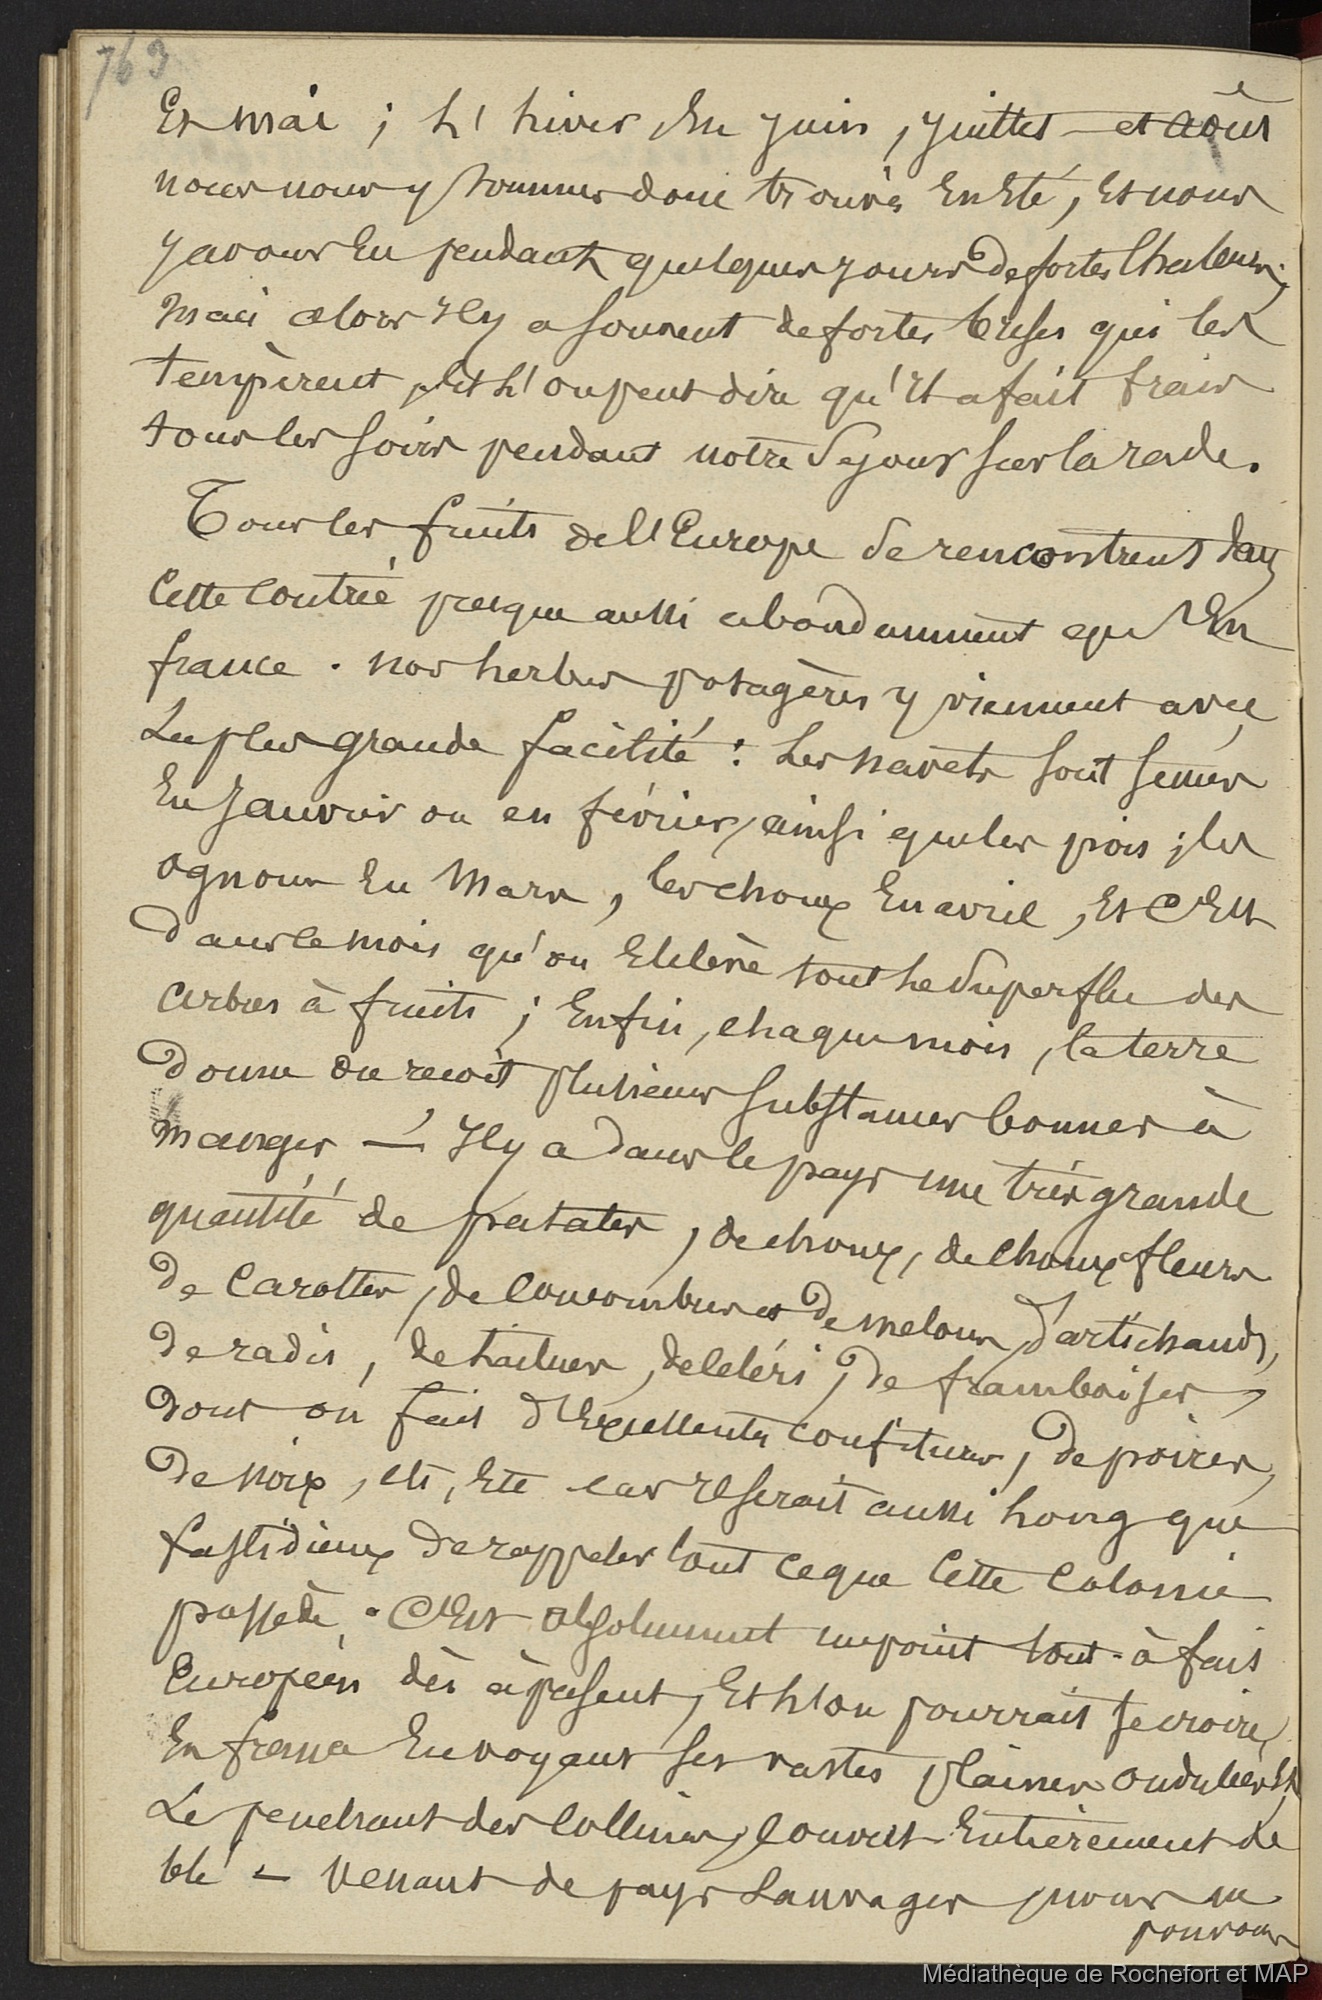 763
Et mai ; l'hiver En juin, juillet et août
nous nous y sommes donc trouvés En Eté, Et nous
y avons Eu pendant quelques jours de fortes Chaleurs ;
Mais alors Il y a souvent de fortes brises qui les
tempèrent, Et l'on peut dire qu'Il a fait frais
tous les soirs pendant notre Sejour sur la rade.
Tous les fruits de l'Europe se rencontrent dans
Cette Contrée presque aussi abondamment qu'En
france . nos herbes potagères y viennent avec
La plus grande facilité : Les navets sont semés
En Janvier ou en février, ainsi que les pois ; les
ognons En Mars, les choux En avril, Et C'Est
dans ce mois qu'on Enlève tout le Superflu des
arbres à fruits ; Enfin, chaque mois, la terre
donne ou reçoit plusieurs substances bonnes à
manger — Il y a dans le pays une très grande
quantité de patates, de choux, de Choux fleurs
de Carottes, de Concombres de melons d'artichauds,
de radis, de laitues, de Céleri, de framboises,
dont on fait d'Excellentes confitures, de poires,
de noix, etc, Etc car Il serait aussi long que
fastidieux de rappeler tout ce que Cette Colonie
possède . C'Est absolument un point tout-à fait
Européen dès à présent, Et l'on pourrait se croire
En france En voyant ses vastes plaines ondulées Et
Le penchant des Collines, Couvert Entièrement de
blé — Venant de pays Sauvages, nous ne
pouvons
Médiathèque de Rochefort et MAP